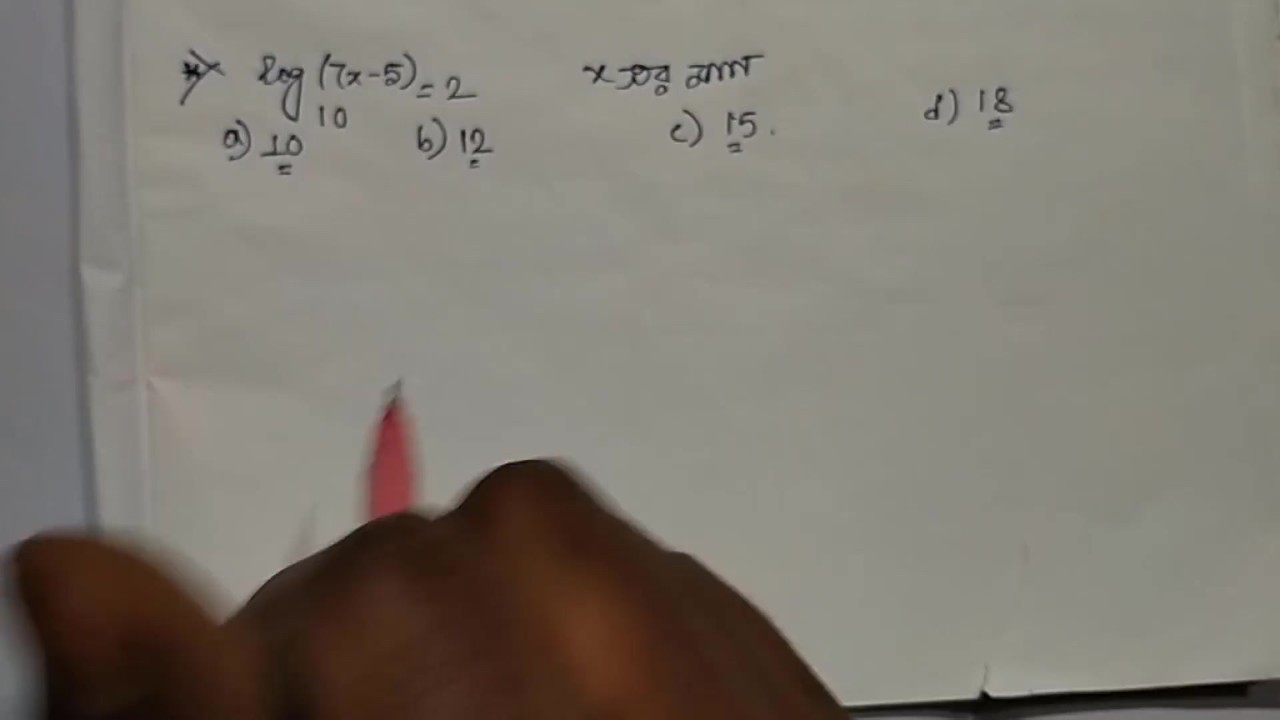 log₁₀(7x-5) = 2 x এর মান
a) 10 b) 12 c) 15. d) 18